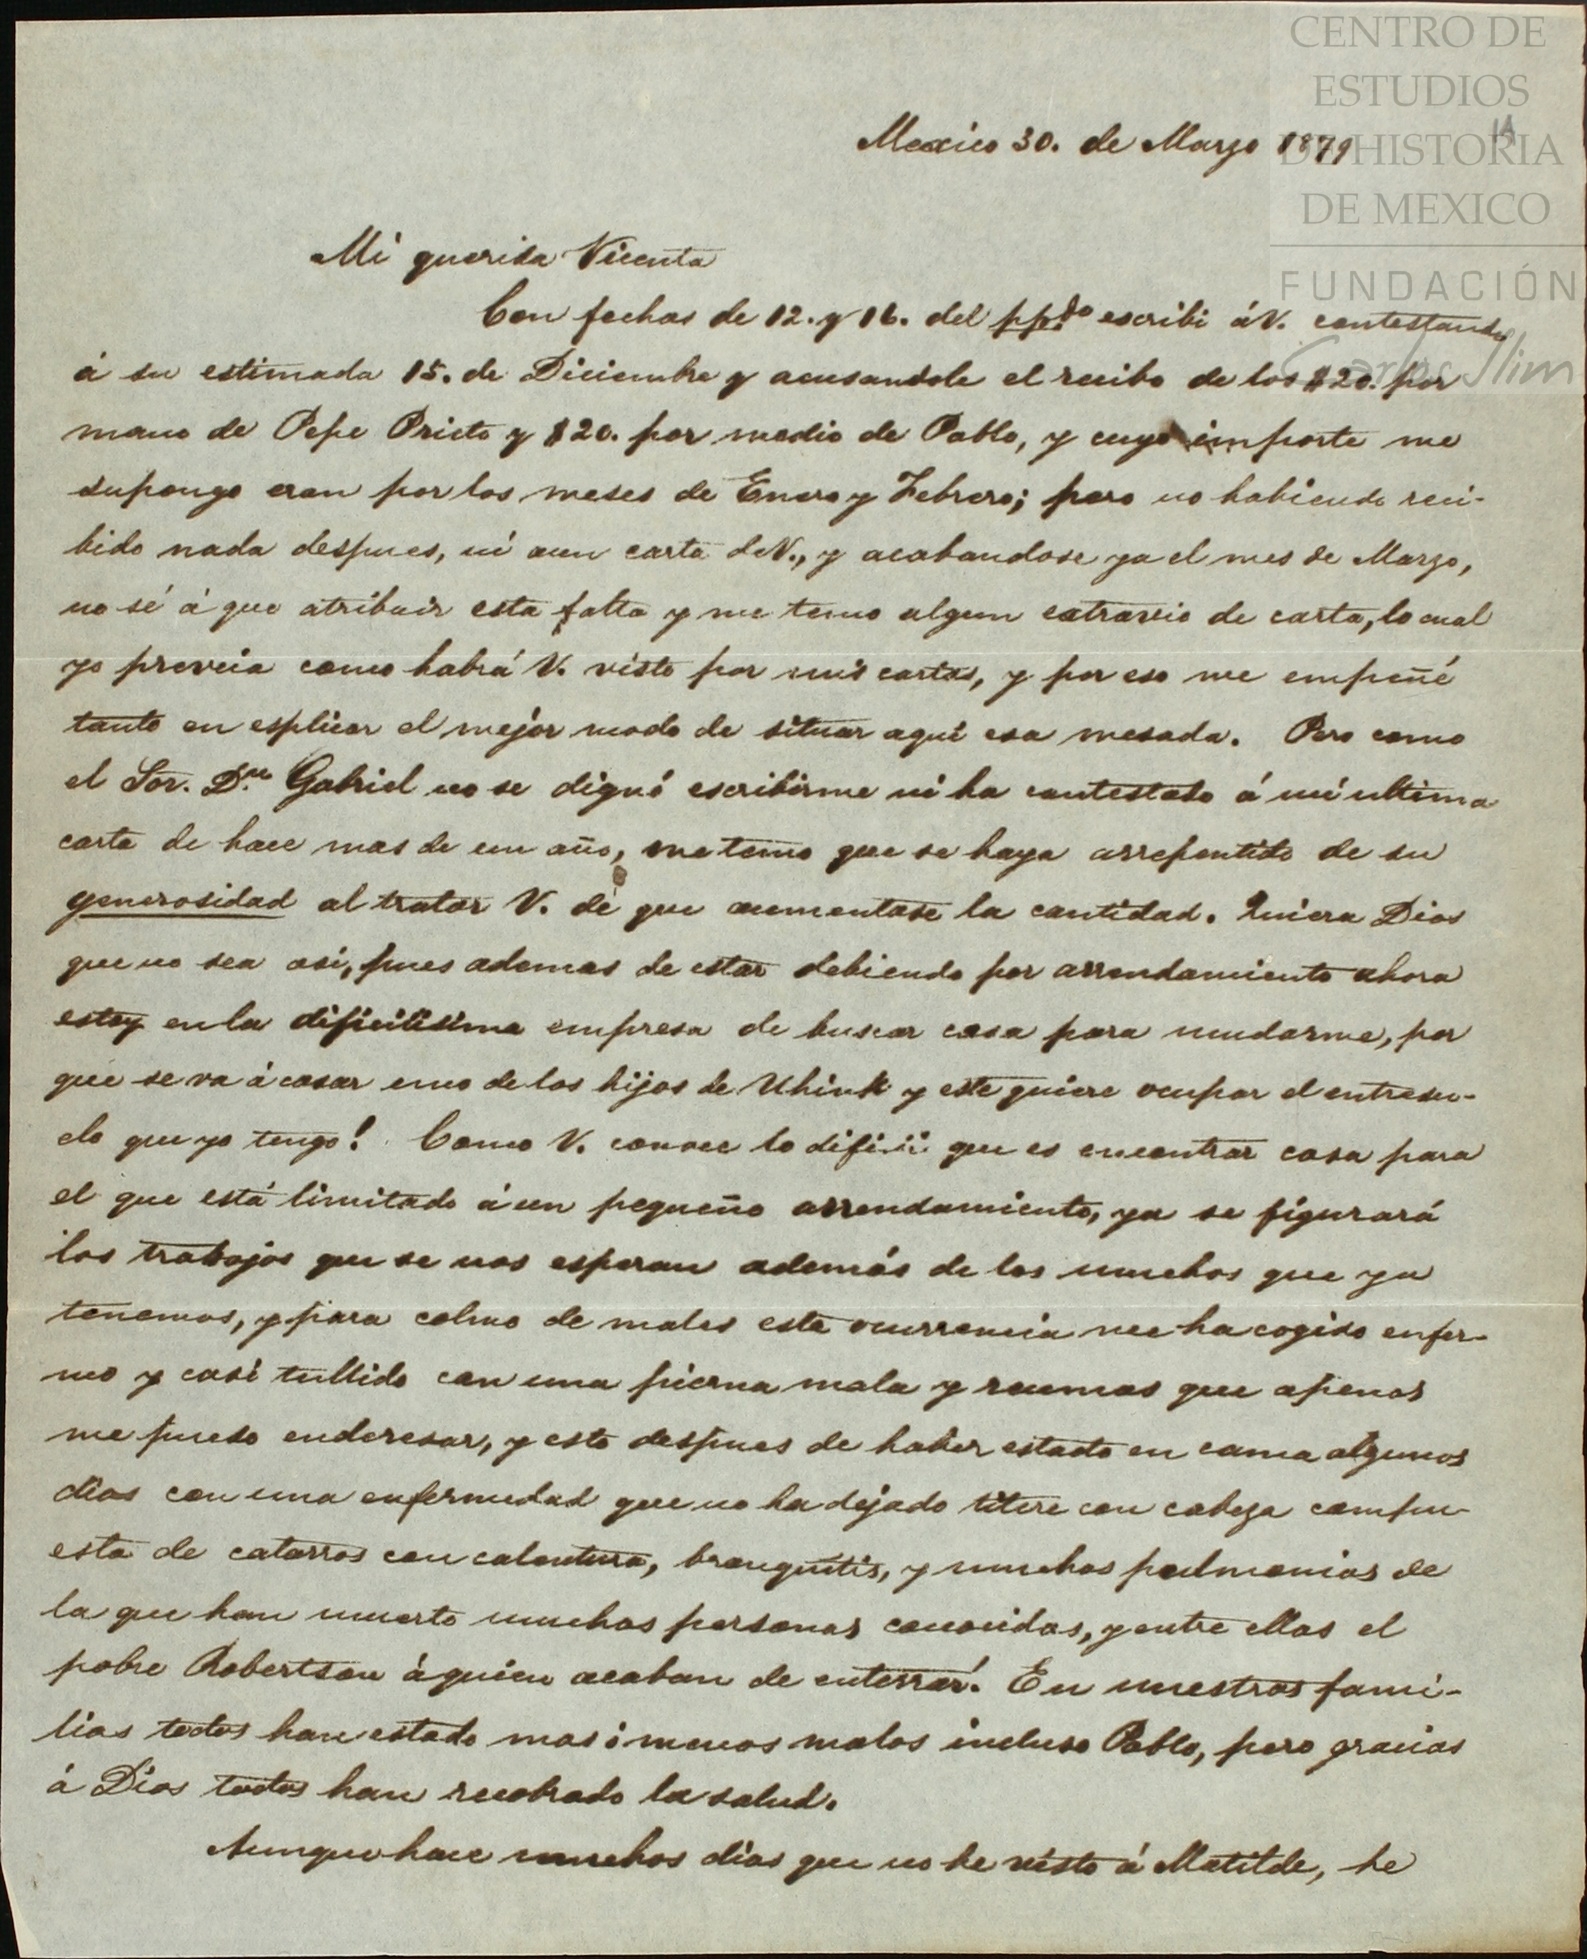 CENTRO DE
ESTUDIOS
DE HISTORIA
DE MEXICO
FUNDACIÓN
Carlos Slim
1A
Mexico 30. de Marzo 1879
Mi querida Vicenta
Con fechas de 12. y 16. del ppdo escribi á V. contestando
á su estimada 15. de Diciembre y acusandole el recibo de los $20. por
mano de Pepe Prieto y $20. por medio de Pablo, y cuyo importe me
supongo eran por los meses de Enero y Febrero; pero no habiendo reci-
bido nada despues, ni aun carta de V., y acabandose ya el mes de Marzo,
no sé á que atribuir esta falta y me temo algun estravio de carta, lo cual
yo preveia como habrá V. visto por mis cartas, y por eso me empeñé
tanto en esplicar el mejor modo de situar aqui esa mesada. Pero como
el Sor. Dn. Gabriel no se dignó escribirme ni ha contestado á mi ultima
carta de hace mas de un año, me temo que se haya arrepentido de su
generosidad al tratar V. de que aumentase la cantidad. Quiera Dios
que no sea asi, pues ademas de estar debiendo por arrendamiento ahora
estoy en la dificilisima empresa de buscar casa para mudarme, por
que se va á casar uno de los hijos de Uhink y este quiere ocupar el entresu-
elo que yo tengo! Como V. conoce lo dificil que es encontrar casa para
el que está limitado á un pequeño arrendamiento, ya se figurará
los trabajos que se nos esperan además de los muchos que ya
tenemos, y para colmo de males esta ocurrencia me ha cogido enfer-
mo y casi tullido con una pierna mala y reumas que apenas
me puedo enderesar, y esto despues de haber estado en cama algunos
dias con una enfermedad que no ha dejado titere con cabeza compu-
esta de catarros con calentura, bronquitis, y muchas pulmonias de
la que han muerto muchas personas conocidas, y entre ellas el
pobre Robertson á quien acaban de enterrar. En nuestras fami-
lias todos han estado mas ó menos malos incluso Pablo, pero gracias
á Dios todos han recobrado la salud.
Aunque hace muchos dias que no he visto á Matilde, he